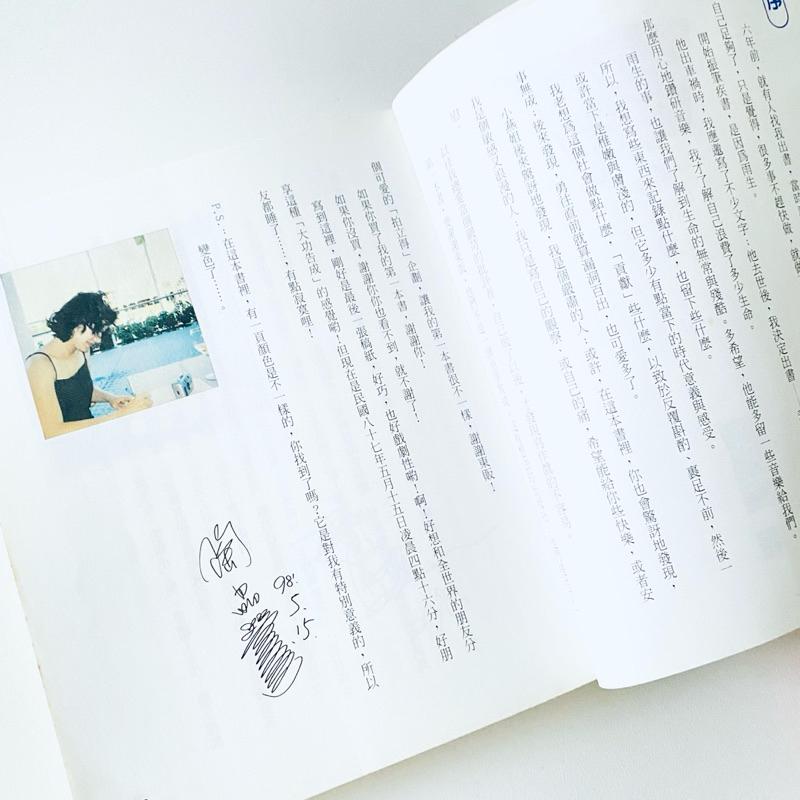 序
六年前，就有人找我出書，當時
自己足夠了，只是覺得，很多事不趕快做，就
開始振筆疾書，是因為雨生。
他出車禍時，我應邀寫了不少文字；他去世後，我決定出書
那麼用心地鑽研音樂，我才了解自己浪費了多少生命。多希望，他能多留一些音樂給我們。
雨生的事，也讓我們了解到生命的無常與殘酷。
所以，我想寫些東西來記錄點什麼，也留下些什麼。
或許當下是稚嫩與膚淺的，但它多少有點當下的時代意義與感受。
我老想為這個社會做點什麼，「貢獻」些什麼，以致於反覆斟酌、裹足不前，然後一
事無成；後來發現，勇往直前就算漏洞百出，也可愛多了。
小燕姐後來驚訝地發現，我這個嚴肅的人；或許，在這本書裡，你也會驚訝地發現，
我是個敏感又浪漫的人，我只是寫自己的觀察，或自己的痛，希望能給你些快樂，或者安
慰。
個可愛的「拍立得」企劃，讓我的第一本書很不一樣，謝謝東販！
如果你買了我的第一本書，謝謝你！
如果你沒買，謝謝你你也看不到，就不謝了！
寫到這裡，剛好是最後一張稿紙，好巧，也好戲劇性喲！啊！好想和全世界的朋友分
享這種「大功告成」的感覺喲！但現在是民國八十七年五月十五日凌晨四點十六分，好朋
友都睡了……，有點寂寞哩！
P.S.：在這本書裡，有一頁顏色是不一樣的，你找到了嗎？它是對我有特別意義的，所以
變色了……。
陶晶瑩
98.5.15.